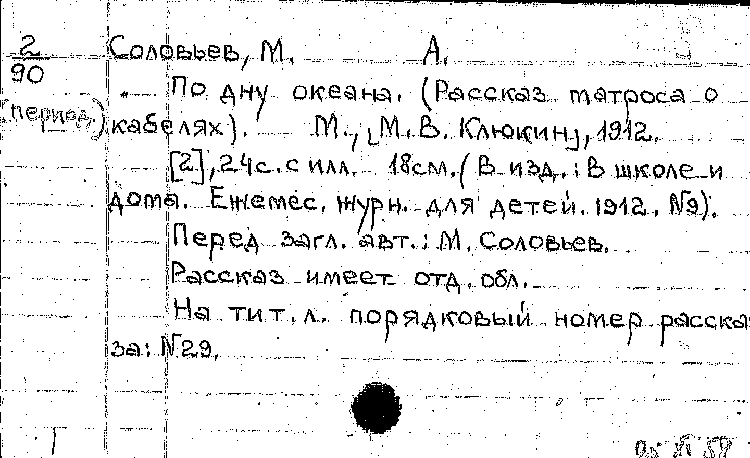 2
90
(период.)
Соловьев, М. А.
По дну океана. (Рассказ матроса о
кабелях). М., [М.В. Клюкин], 1912.
[2], 24с. с илл. 18см. (В изд.: В школе и
дома. Ежемес. журн. для детей. 1912. №9).
Перед загл. авт.: М. Соловьев.
Рассказ имеет отд. обл.
На тит. л. порядковый номер расска
за: №29.